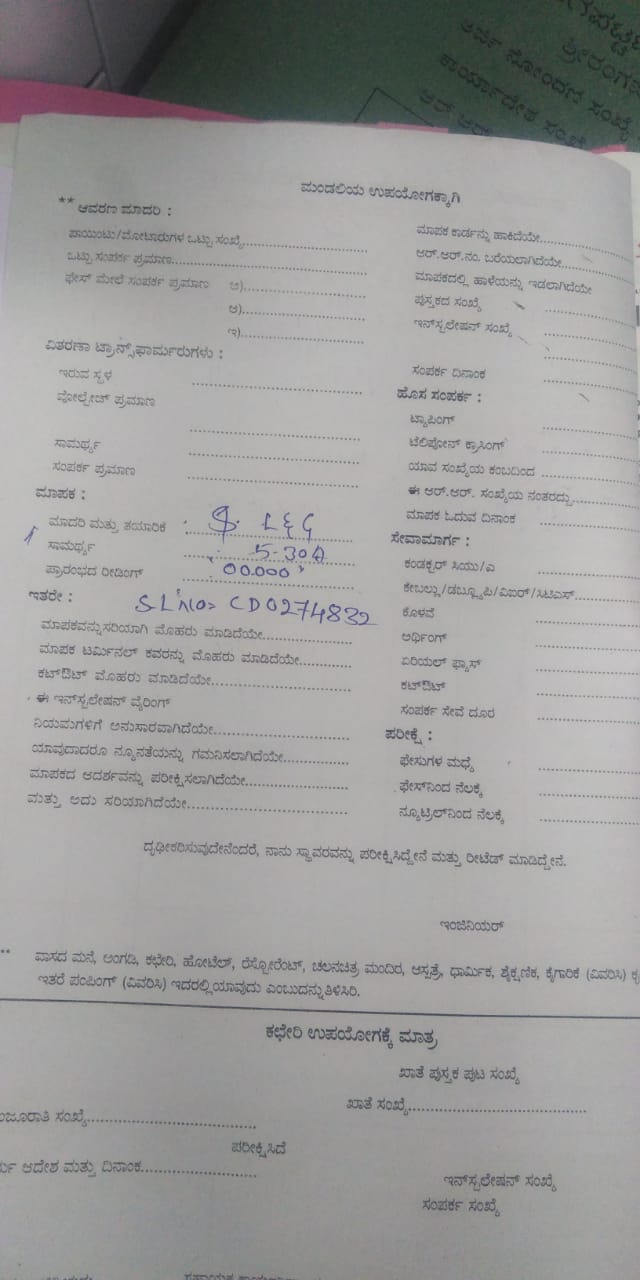 ಶ್ರೀರಂಗ
ಅರ್ಜಿ ನೋಂದಣಿ ಸಂಖ್ಯೆ
ಕಾರ್ಯಾದೇಶ ಸಂಖ್ಯೆ
ಆರ್.ಆರ್.
ಮಂಡಲಿಯ ಉಪಯೋಗಕ್ಕಾಗಿ
** ಆವರಣ ಮಾದರಿ :
ಪಾಯಿಂಟು/ಮೋಟಾರುಗಳ ಒಟ್ಟು ಸಂಖ್ಯೆ
ಒಟ್ಟು ಸಂಪರ್ಕ ಪ್ರಮಾಣ
ಫೇಸ್ ಮೇಲೆ ಸಂಪರ್ಕ ಪ್ರಮಾಣ ಅ)
ಆ)
ಇ)
ವಿತರಣಾ ಟ್ರಾನ್ಸ್‌ಫಾರ್ಮರುಗಳು :
ಇರುವ ಸ್ಥಳ
ವೋಲ್ಟೇಜ್ ಪ್ರಮಾಣ
ಸಾಮರ್ಥ್ಯ
ಸಂಪರ್ಕ ಪ್ರಮಾಣ
ಮಾಪಕ :
ಮಾದರಿ ಮತ್ತು ತಯಾರಿಕೆ : L&G
ಸಾಮರ್ಥ್ಯ : 5-30A
ಪ್ರಾರಂಭದ ರೀಡಿಂಗ್ : 00.000
ಇತರೇ : SL No= CD0274832
ಮಾಪಕವನ್ನು ಸರಿಯಾಗಿ ಮೊಹರು ಮಾಡಿದೆಯೇ
ಮಾಪಕ ಟರ್ಮಿನಲ್ ಕವರನ್ನು ಮೊಹರು ಮಾಡಿದೆಯೇ
ಕಟ್‌ಔಟ್ ಮೊಹರು ಮಾಡಿದೆಯೇ
ಈ ಇನ್‌ಸ್ಟಲೇಷನ್ ವೈರಿಂಗ್
ನಿಯಮಗಳಿಗೆ ಅನುಸಾರವಾಗಿದೆಯೇ
ಯಾವುದಾದರೂ ನ್ಯೂನತೆಯನ್ನು ಗಮನಿಸಲಾಗಿದೆಯೇ
ಮಾಪಕದ ಆದರ್ಶವನ್ನು ಪರೀಕ್ಷಿಸಲಾಗಿದೆಯೇ
ಮತ್ತು ಅದು ಸರಿಯಾಗಿದೆಯೇ
ಮಾಪಕ ಕಾರ್ಡನ್ನು ಹಾಕಿದೆಯೇ
ಆರ್.ಆರ್.ನಂ. ಬರೆಯಲಾಗಿದೆಯೇ
ಮಾಪಕದಲ್ಲಿ ಹಾಳೆಯನ್ನು ಇಡಲಾಗಿದೆಯೇ
ಪುಸ್ತಕದ ಸಂಖ್ಯೆ
ಇನ್‌ಸ್ಟಲೇಷನ್ ಸಂಖ್ಯೆ
ಸಂಪರ್ಕ ದಿನಾಂಕ
ಹೊಸ ಸಂಪರ್ಕ :
ಟ್ಯಾಪಿಂಗ್
ಟೆಲಿಫೋನ್ ಕ್ರಾಸಿಂಗ್
ಯಾವ ಸಂಖ್ಯೆಯ ಕಂಬದಿಂದ
ಈ ಆರ್.ಆರ್. ಸಂಖ್ಯೆಯ ನಂತರದ್ದು
ಮಾಪಕ ಓದುವ ದಿನಾಂಕ
ಸೇವಾಮಾರ್ಗ :
ಕಂಡಕ್ಟರ್ ಸಿಯು/ಎ
ಕೇಬಲ್ಲು/ಡಬ್ಲ್ಯೂಪಿ/ವಿಐಆರ್/ಸಿಟಿಎಸ್
ಕೊಳವೆ
ಅರ್ಥಿಂಗ್
ಏರಿಯಲ್ ಫ್ಯೂಸ್
ಕಟ್‌ಔಟ್
ಸಂಪರ್ಕ ಸೇವೆ ದೂರ
ಪರೀಕ್ಷೆ :
ಫೇಸುಗಳ ಮಧ್ಯೆ
ಫೇಸ್‌ನಿಂದ ನೆಲಕ್ಕೆ
ನ್ಯೂಟ್ರಲ್‌ನಿಂದ ನೆಲಕ್ಕೆ
ದೃಢೀಕರಿಸುವುದೇನೆಂದರೆ, ನಾನು ಸ್ಥಾವರವನ್ನು ಪರೀಕ್ಷಿಸಿದ್ದೇನೆ ಮತ್ತು ರೀಟೆಡ್ ಮಾಡಿದ್ದೇನೆ.
ಇಂಜಿನಿಯರ್
** ವಾಸದ ಮನೆ, ಅಂಗಡಿ, ಕಛೇರಿ, ಹೋಟೆಲ್, ರೆಸ್ಟೋರೆಂಟ್, ಚಲನಚಿತ್ರ ಮಂದಿರ, ಆಸ್ಪತ್ರೆ, ಧಾರ್ಮಿಕ, ಶೈಕ್ಷಣಿಕ, ಕೈಗಾರಿಕೆ (ವಿವರಿಸಿ)
ಇತರೆ ಪಂಪಿಂಗ್ (ವಿವರಿಸಿ) ಇದರಲ್ಲಿ ಯಾವುದು ಎಂಬುದನ್ನು ತಿಳಿಸಿರಿ.
ಕಛೇರಿ ಉಪಯೋಗಕ್ಕೆ ಮಾತ್ರ
ಖಾತೆ ಪುಸ್ತಕ ಪುಟ ಸಂಖ್ಯೆ
ಖಾತೆ ಸಂಖ್ಯೆ
ಂಜೂರಾತಿ ಸಂಖ್ಯೆ
ಪರೀಕ್ಷಿಸಿದೆ
ಆದೇಶ ಮತ್ತು ದಿನಾಂಕ
ಇನ್‌ಸ್ಟಲೇಷನ್ ಸಂಖ್ಯೆ
ಸಂಪರ್ಕ ಸಂಖ್ಯೆ